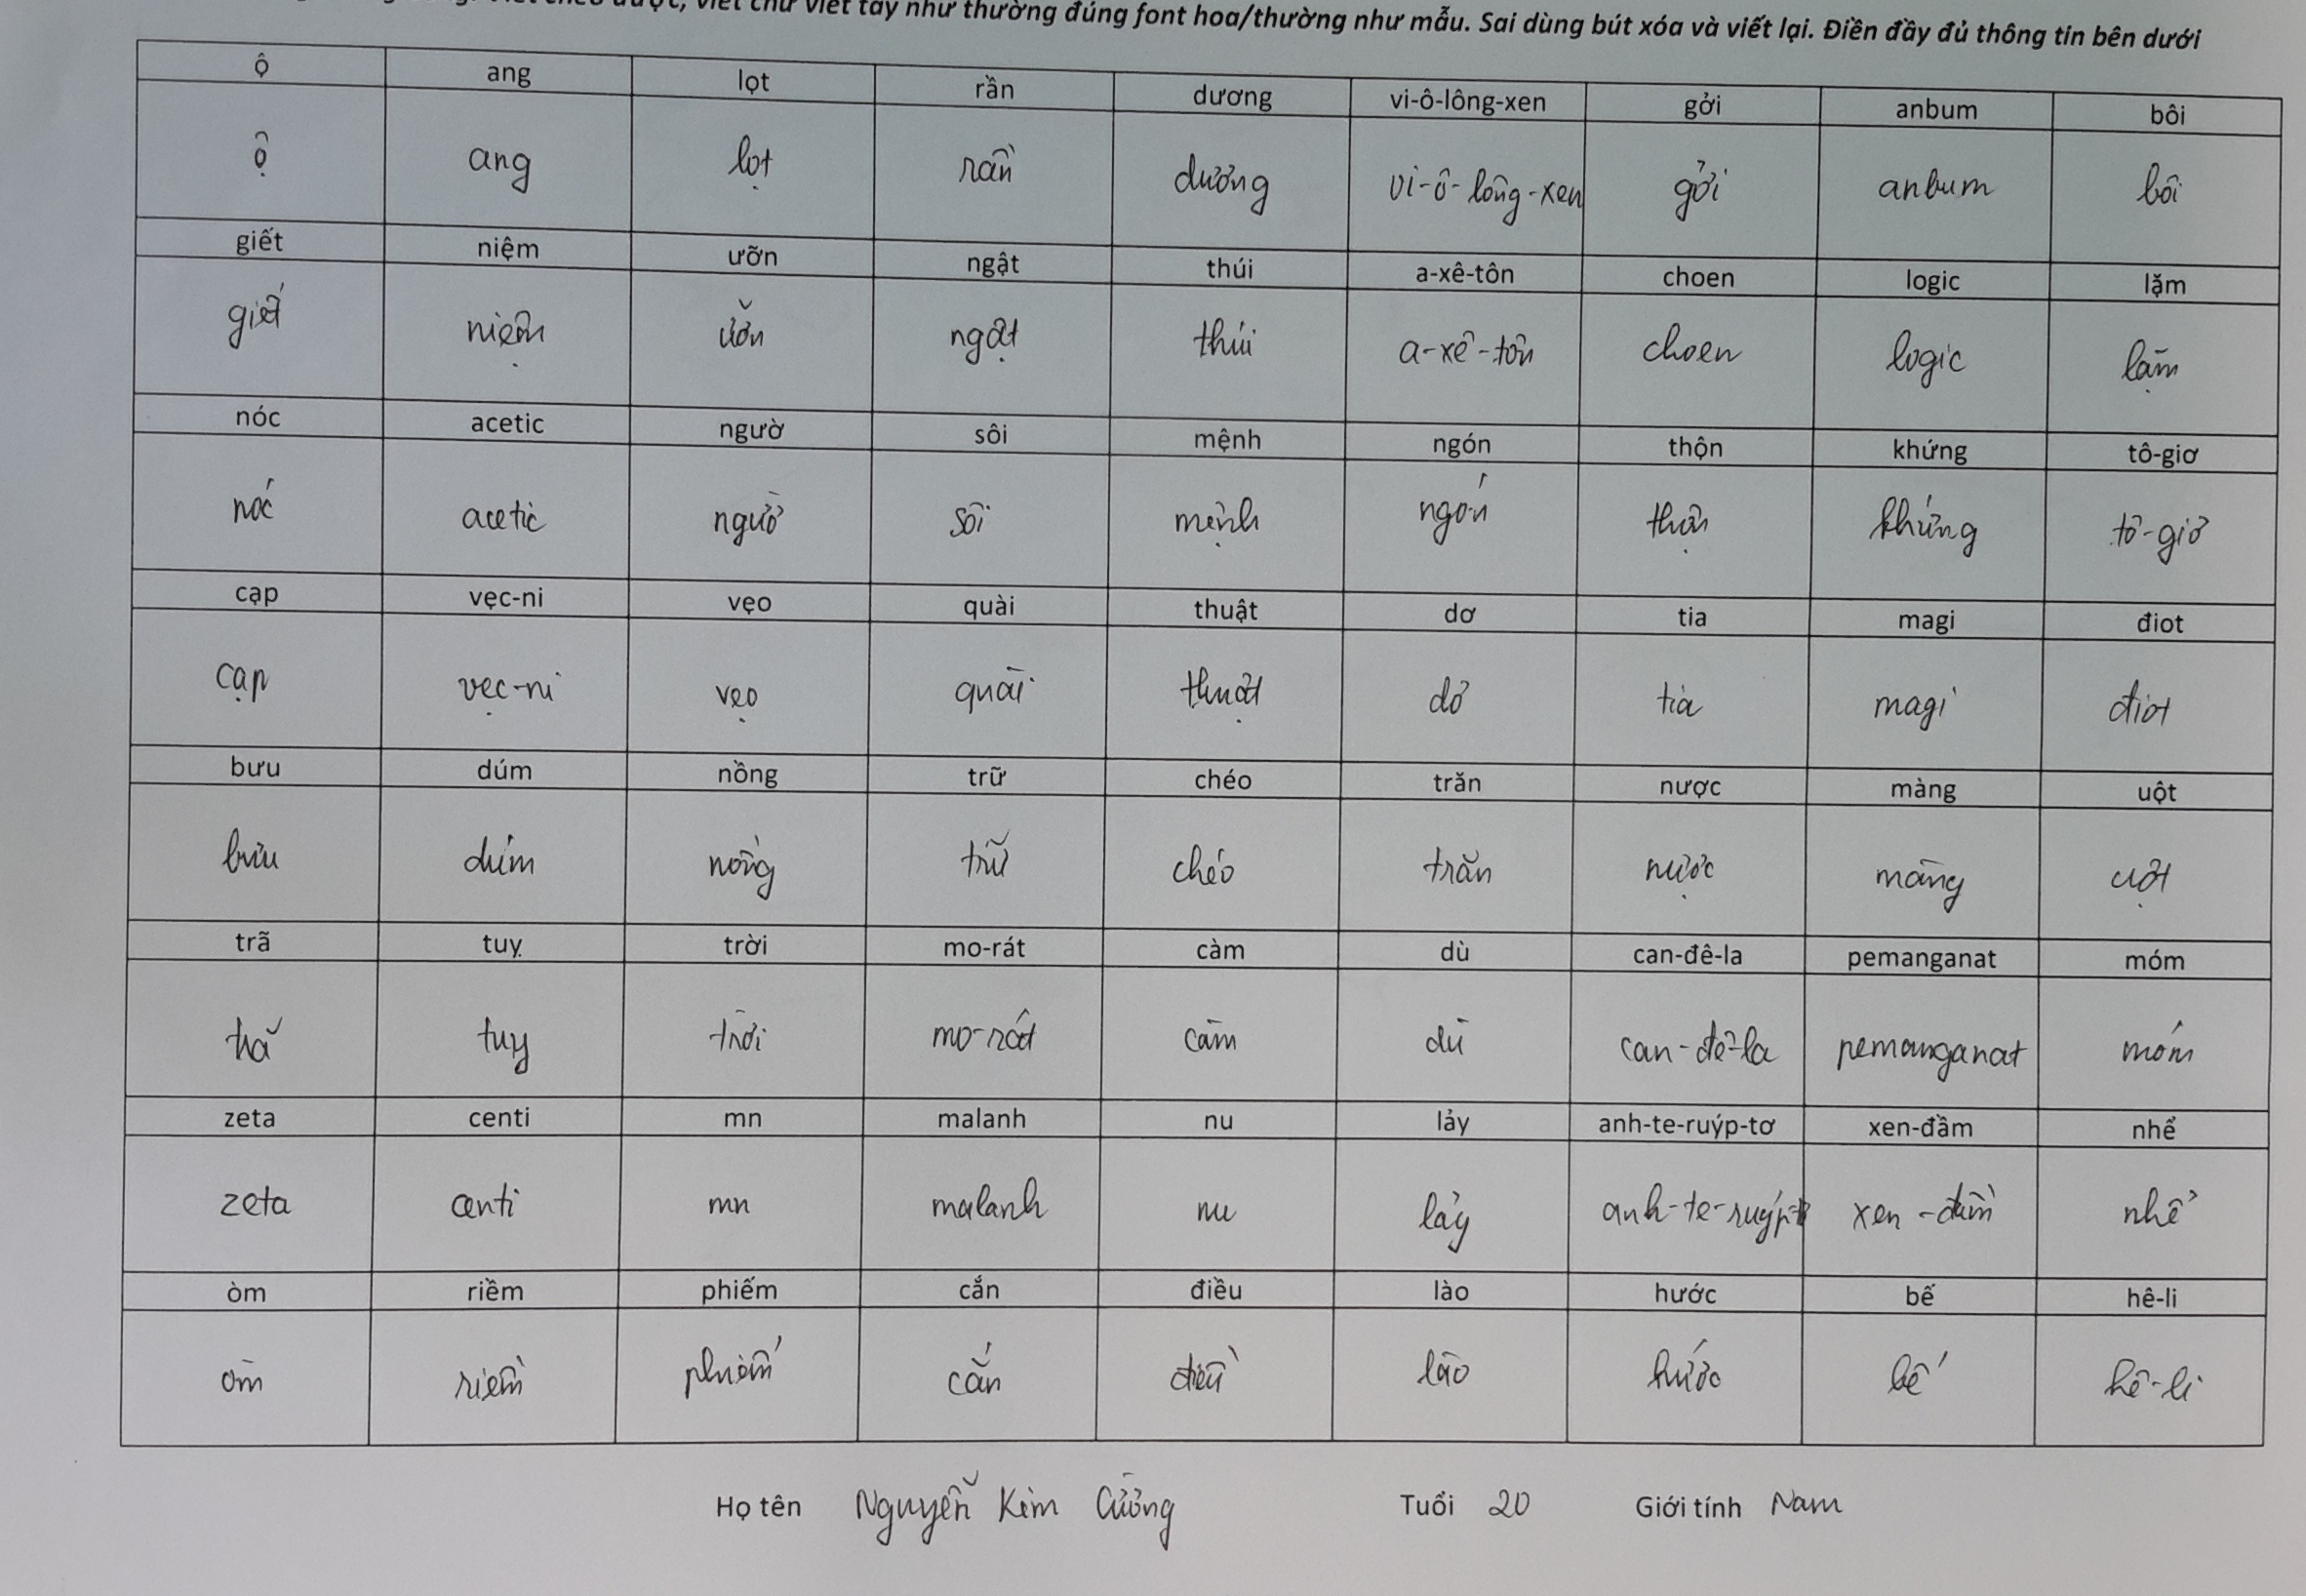 viết chữ viết tay như thường đúng font hoa/thường như mẫu. Sai dùng bút xóa và viết lại. Điền đầy đủ thông tin bên dưới
ộ ang lọt rần dương vi-ô-lông-xen gởi anbum bôi
ộ ang lọt rần dương vi-ô-lông-xen gởi anbum bôi
giết niệm ưỡn ngật thúi a-xê-tôn choen logic lặm
giết niệm ưỡn ngật thúi a-xê-tôn choen logic lặm
nóc acetic ngườ sôi mệnh ngón thộn khứng tô-giơ
nóc acetic ngườ sôi mệnh ngón thộn khứng tô-giơ
cạp vẹc-ni vẹo quài thuật dơ tia magi điot
cạp vẹc-ni vẹo quài thuật dơ tia magi điot
bưu dúm nồng trữ chéo trăn nược màng uột
bưu dúm nồng trữ chéo trăn nược màng uột
trã tuỵ trời mo-rát càm dù can-đê-la pemanganat móm
trã tuy trời mo-rát càm dù can-đê-la pemanganat móm
zeta centi mn malanh nu lảy anh-te-ruýp-tơ xen-đầm nhể
zeta centi mn malanh nu lảy anh-te-ruýp-t xen-đầm nhể
òm riềm phiếm cắn điều lào hước bế hê-li
òm riềm phiếm cắn điều lào hước bế hê-li
Họ tên Nguyễn Kim Cường Tuổi 20 Giới tính Nam